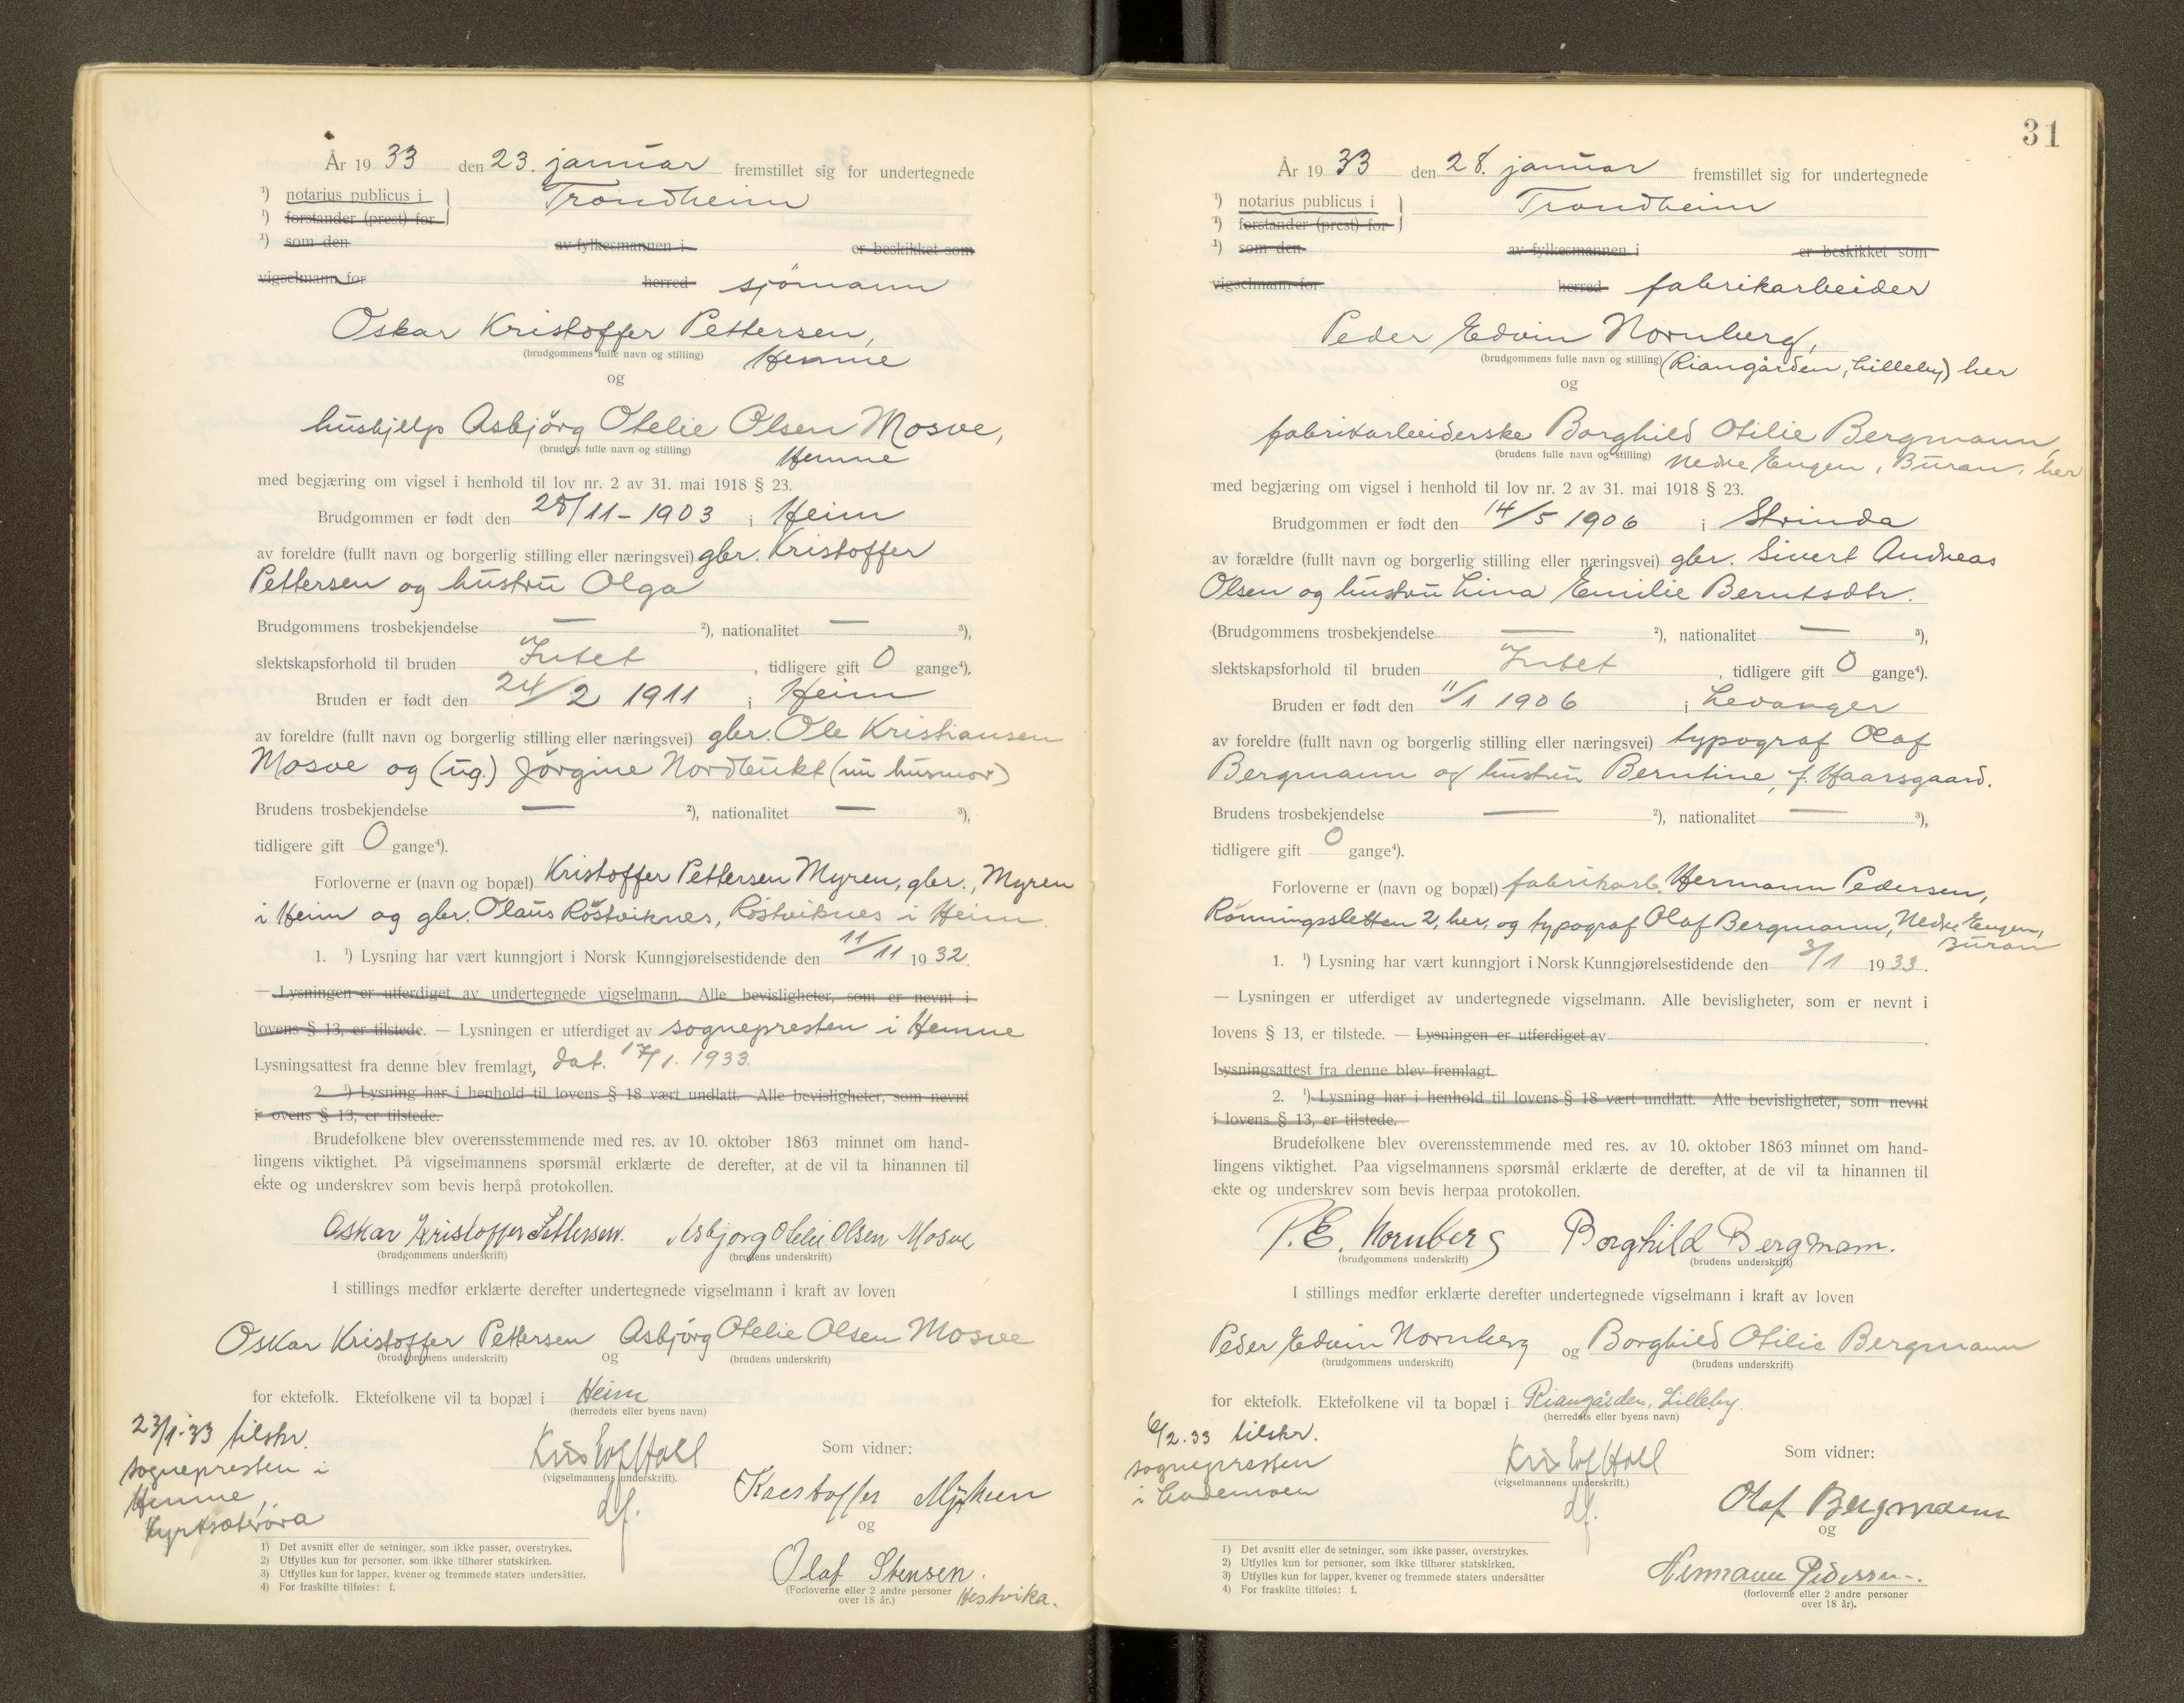 År 19 33 den 23. januar fremstillet sig for undertegnede
¹) notarius publicus i } Trondheim
¹) forstander (prest) for
¹) som den av fylkesmannen i er beskikket som
vigselmann for herred sjömann
Oskar Kristoffer Pettersen,
(brudgommens fulle navn og stilling) Hemne
og
hushjelp Asbjörg Otelie Olsen Mosve,
(brudens fulle navn og stilling) Hemne
med begjæring om vigsel i henhold til lov nr. 2 av 31. mai 1918 § 23.
Brudgommen er født den 28/11-1903 i Heim
av foreldre (fullt navn og borgerlig stilling eller næringsvei) gbr. Kristoffer
Pettersen og hustru Olga
Brudgommens trosbekjendelse — ²), nationalitet — ³),
slektskapsforhold til bruden Intet, tidligere gift 0 gange⁴).
Bruden er født den 24/2 1911 i Heim
av foreldre (fullt navn og borgerlig stilling eller næringsvei) gbr. Ole Kristiansen
Mosve og (ug.) Jörgine Nordbukt (nu husmor)
Brudens trosbekjendelse — ²), nationalitet — ³),
tidligere gift 0 gange⁴).
Forloverne er (navn og bopæl) Kristoffer Pettersen Myren, gbr., Myren
i Heim og gbr. Olaus Röstviknes, Röstviknes i Heim.
1. ¹) Lysning har vært kunngjort i Norsk Kunngjørelsestidende den 11/11 1932.
— Lysningen er utferdiget av undertegnede vigselmann. Alle bevisligheter, som er nevnt i
lovens § 13, er tilstede. — Lysningen er utferdiget av sognepresten i Hemne
Lysningsattest fra denne blev fremlagt, dat. 17/1. 1933.
2. ¹) Lysning har i henhold til lovens § 18 vært undlatt. Alle bevisligheter, som nevnt
i ovens § 13, er tilstede.
Brudefolkene blev overensstemmende med res. av 10. oktober 1863 minnet om hand-
lingens viktighet. På vigselmannens spørsmål erklærte de derefter, at de vil ta hinannen til
ekte og underskrev som bevis herpå protokollen.
Oskar Kristoffer Pettersen. Asbjorg Otelie Olsen Mosve
(brudgommens underskrift) (brudens underskrift)
I stillings medfør erklærte derefter undertegnede vigselmann i kraft av loven
Oskar Kristoffer Pettersen og Asbjörg Otelie Olsen Mosve
(brudgommens underskrift) (brudens underskrift)
for ektefolk. Ektefolkene vil ta bopæl i Heim
(herredets eller byens navn)
23/1-33 tilskr.
sognepresten i
Hemne,
Kyrksæterøra
Kristof Hall
(vigselmannens underskrift).
df.
Som vidner:
Kristoffer Myhren
og
Olaf Stensen.
(Forloverne eller 2 andre personer
over 18 år.) Hestvika.
1) Det avsnitt eller de setninger, som ikke passer, overstrykes.
2) Utfylles kun for personer, som ikke tilhører statskirken.
3) Utfylles kun for lapper, kvener og fremmede staters undersåtter.
4) For fraskilte tilføies: f.
31
År 19 33 den 28. januar fremstillet sig for undertegnede
¹) notarius publicus i } Trondheim
¹) forstander (prest) for
¹) som den av fylkesmannen i er beskikket som
vigselmann for herred fabrikarbeider
Peder Edvin Nornberg,
(brudgommens fulle navn og stilling) (Riangården, Lilleby) her
og
fabrikarbeiderske Borghild Otilie Bergmann,
(brudens fulle navn og stilling) Nedre Engen, Buran, her
med begjæring om vigsel i henhold til lov nr. 2 av 31. mai 1918 § 23.
Brudgommen er født den 14/5 1906 i Strinda
av forældre (fullt navn og borgerlig stilling eller næringsvei) gbr. Sivert Andreas
Olsen og hustru Lina Emilie Berntsdtr.
(Brudgommens trosbekjendelse — ²), nationalitet — ³),
slektskapsforhold til bruden Intet, tidligere gift 0 gange⁴).
Bruden er født den 11/1 1906 i Levanger
av foreldre (fullt navn og borgerlig stilling eller næringsvei) typograf Olaf
Bergmann og hustru Berntine, f. Haarsgaard.
Brudens trosbekjendelse — ²), nationalitet — ³),
tidligere gift 0 gange⁴).
Forloverne er (navn og bopæl) fabrikarb. Hermann Pedersen,
Rönningsletten 2, her, og typograf Olaf Bergmann, Nedre Engen,
Buran
1. ¹) Lysning har vært kunngjort i Norsk Kunngjørelsestidende den 3/1 1933.
— Lysningen er utferdiget av undertegnede vigselmann. Alle bevisligheter, som er nevnt i
lovens § 13, er tilstede. — Lysningen er utferdiget av
Lysningsattest fra denne blev fremlagt.
2. ¹) Lysning har i henhold til lovens § 18 vært undlatt. Alle bevisligheter, som nevnt
i lovens § 13, er tilstede.
Brudefolkene blev overensstemmende med res. av 10. oktober 1863 minnet om hand-
lingens viktighet. Paa vigselmannens spørsmål erklærte de derefter, at de vil ta hinannen til
ekte og underskrev som bevis herpaa protokollen.
P. E. Nornberg Borghild Bergmann.
(brudgommens underskrift) (brudens underskrift)
I stillings medfør erklærte derefter undertegnede vigselmann i kraft av loven
Peder Edvin Nornberg og Borghild Otilie Bergmann
(brudgommens underskrift) (brudens underskrift)
for ektefolk. Ektefolkene vil ta bopæl i Riangården, Lilleby.
(herredets eller byens navn)
6/2.33 tilskr.
sognepresten
i Lademoen
Kristof Hall
(vigselmannens underskrift.)
df.
Som vidner:
Olaf Bergmann
og
Hermann Pedersen.
(forloverne eller 2 andre personer
over 18 år).
1) Det avsnitt eller de setninger, som ikke passer, overstrykes.
2) Utfylles kun for personer, som ikke tilhører statskirken.
3) Utfylles kun for lapper, kvener og fremmede staters undersåtter
4) For fraskilte tilføies: f.